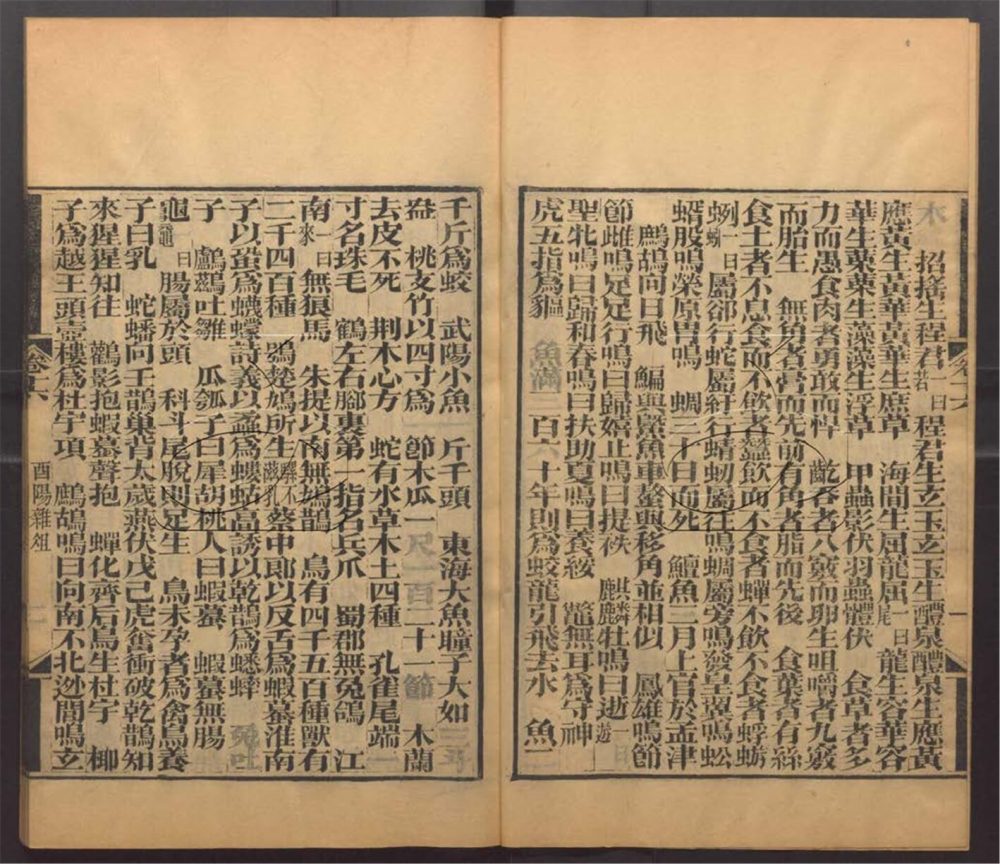 木　招搖生程君一曰程君生玄玉玄玉生醴泉醴泉生應黃
應黃生黃華黃華生庶草　海閭生屈龍屈一曰龍生容華容
華生蔈蔈生藻藻生浮草　甲蟲影伏羽蟲體伏　食草者多
力而愚食肉者勇敢而悍　齕吞者八竅而卵生咀嚼者九竅
而胎生　無角者膏而先前有角者脂而先後　食葉者有絲
食土者不息食而不飲者蠶飲而不食者蟬不飲不食者蜉蝣
蛚一曰屬郤行蛇屬紆行蜻蛚屬往鳴蜩屬旁鳴發皇翼鳴蚣
蝑股鳴榮原胃鳴　蜩三十日而死　鱣魚三月上官於孟津
鷓鴣向日飛　鯿與鱟魚車螯與移角並相似　鳳雄鳴節
節雌鳴足足行鳴曰歸嬉止鳴曰提袂　麒麟牡鳴曰逝遊一曰
聖牝鳴曰歸和春鳴曰扶助夏鳴曰養綏　鼈無耳爲守神
虎五指爲貙　魚滿三百六十年則爲蛟龍引飛去水　魚二
卷十六
千斤爲蛟　武陽小魚一斤千頭　東海大魚瞳子大如三斗
盎　桃支竹以四寸爲一節木瓜一尺一百二十一節　木蘭
去皮不死　荆木心方　蛇有水草木土四種　孔雀尾端一
寸名珠毛　鶴左右腳裏第一指名兵爪　蜀郡無兔鴿　江
南一曰無狼馬　朱提以南無鳩鵲　鳥有四千五百種獸有
二千四百種　鴞楚鳩所生蔡中郞以反舌爲蝦蟇淮南
子以蛩爲蠛蠓詩義以蟊爲螻蛄高誘以乾鵲爲蟋蟀　兔吐
子　鸕鶿吐雛　瓜瓠子曰犀胡桃人曰蝦蟇　蝦蟇無腸
龜一曰腸屬於頭　科斗尾脫則足生　鳥未孕者爲禽鳥養
子曰乳　蛇蟠向壬鵲巢背太歲燕伏戊己虎奮衝破乾鵲知
來猩猩知往　鸛影抱蝦蟇聲抱　蟬化齊后鳥生杜宇　椰
子爲越王頭壺樓爲杜宇項　鷓鴣鳴曰向南不北逃閒鳴玄
酉陽雜俎